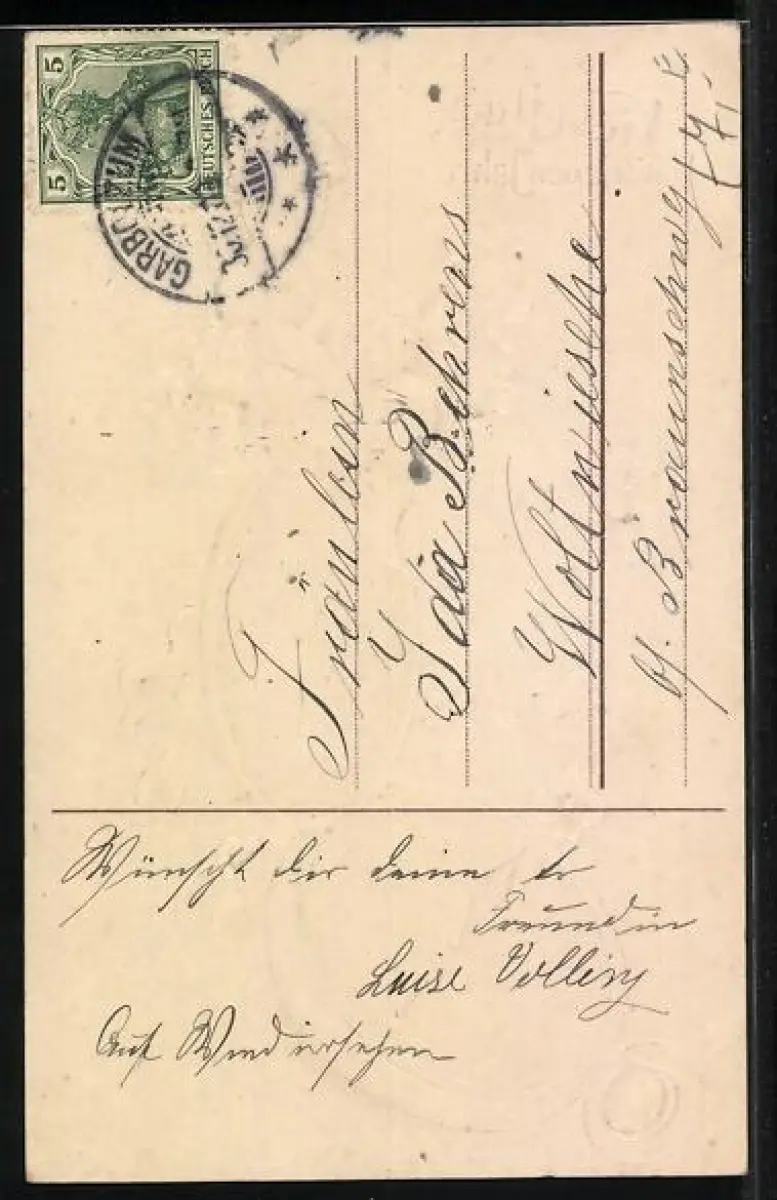 5
5
DEUTSCHES REICH
GARBOLZUM
30.12.
Fräulein
Ida Behrens
Woltwiesche
b/. Braunschweig
Wünscht dir deine tr
Freundin
Luise Volling
Auf Wiedersehen